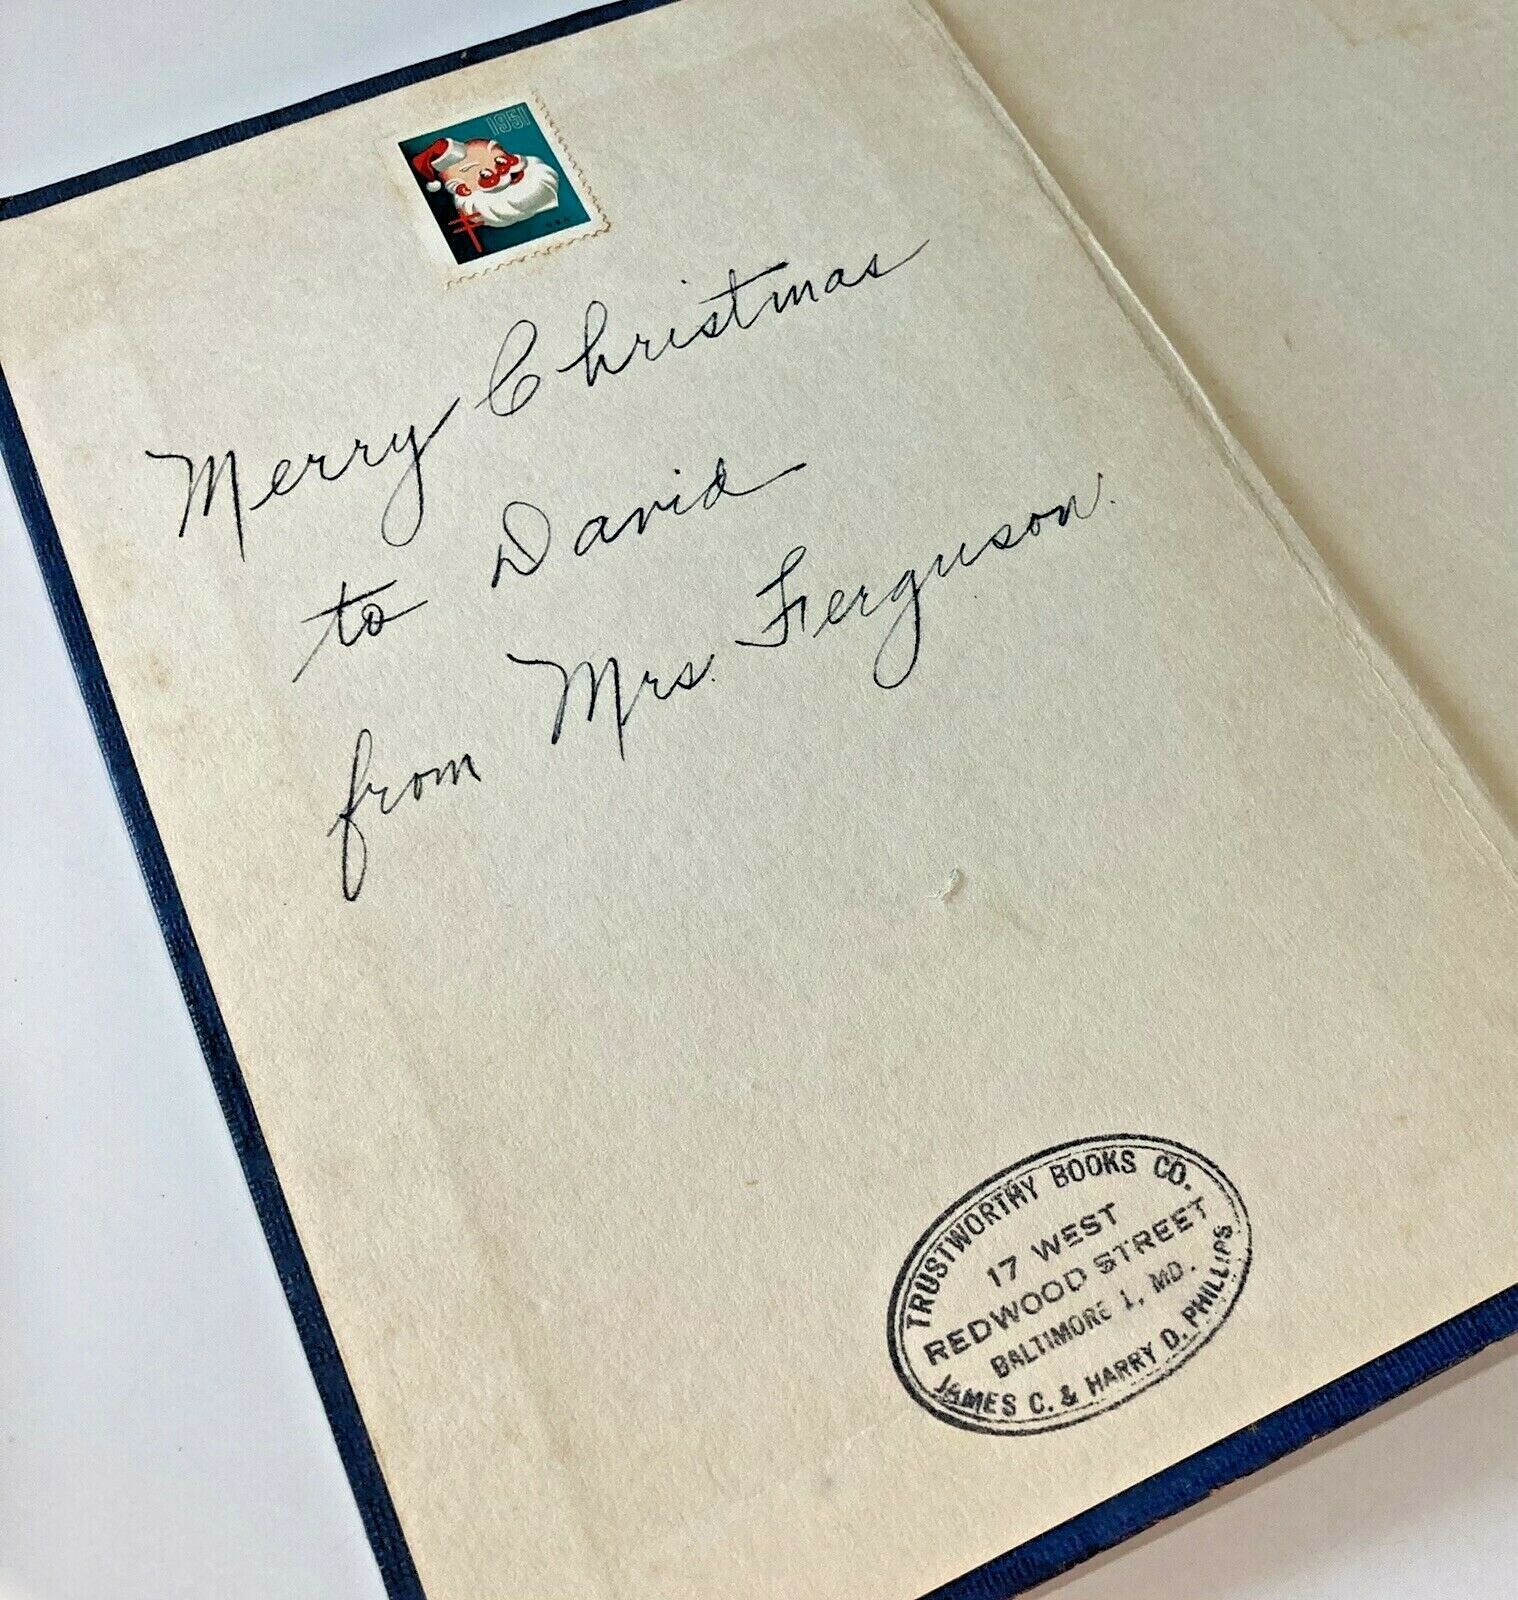 1951
U.S.A.
Merry Christmas
to David
from Mrs. Ferguson.
TRUSTWORTHY BOOKS CO.
17 WEST
REDWOOD STREET
BALTIMORE 1, MD.
JAMES C. & HARRY D. PHILLIPS